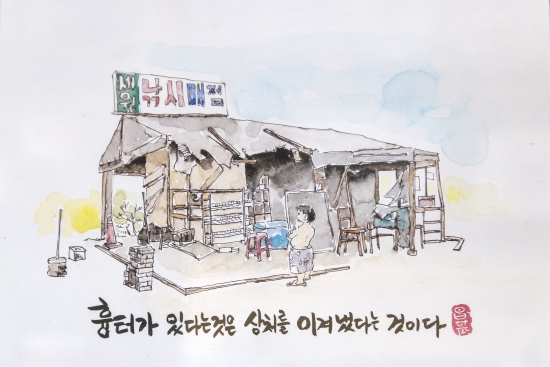 낚시매점
흉터가 있다는것은 상처를 이겨냈다는 것이다